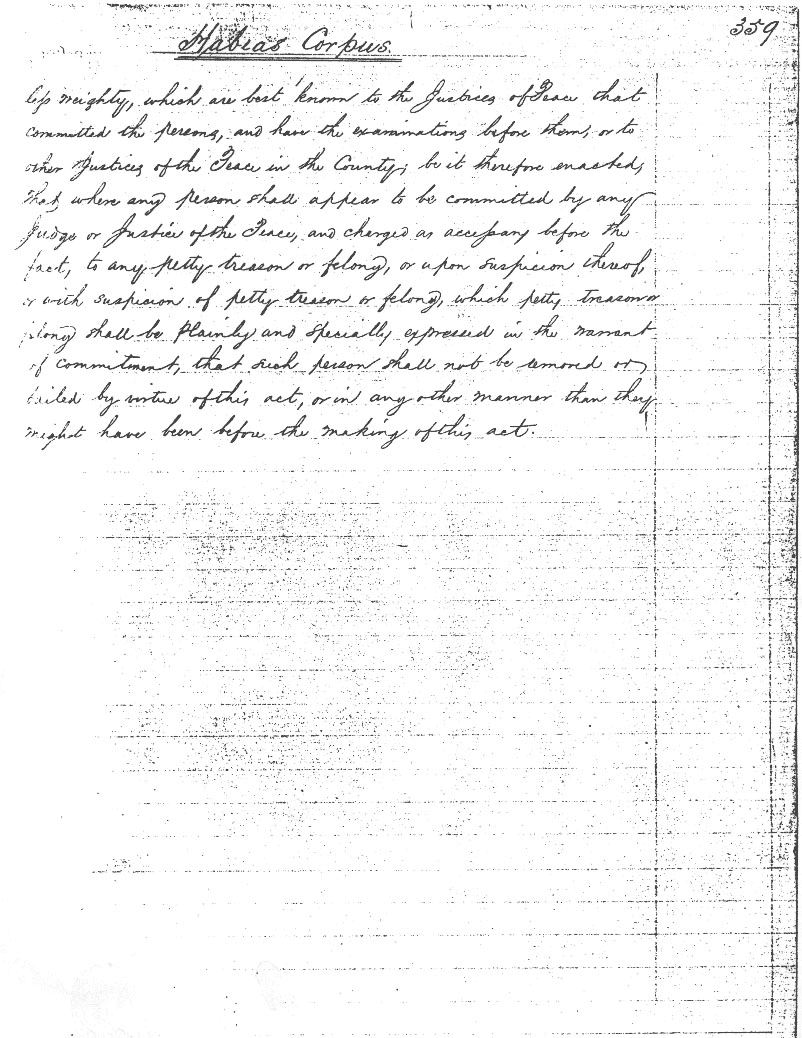 359
Habias Corpus.
less weighty, which are best known to the Justices of Peace that
committed the persons, and have the examinations before them, or to
other Justices of the Peace in the County; be it therefore enacted,
that, where any person shall appear to be committed by any
Judge or Justice of the Peace, and charged as accessary before the
fact, to any petty treason or felony, or upon suspicion thereof,
or with suspicion of petty treason or felony, which petty treason or
felony shall be plainly and specially expressed in the warrant
of commitment, that such person shall not be removed or
bailed by virtue of this act, or in any other manner than they
might have been before the making of this act.